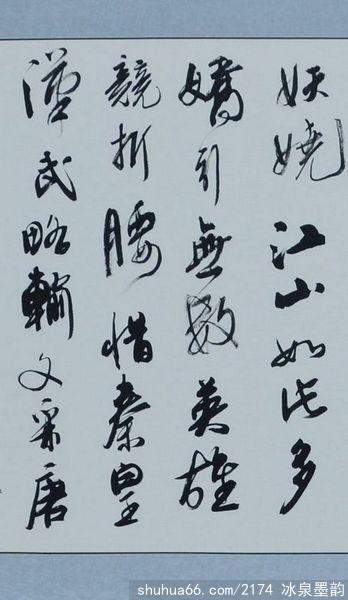 妖嬈江山如此多
嬌引無數英雄
競折腰惜秦皇
漢武略輸文采唐
shuhua66.com/2174 冰泉墨韵